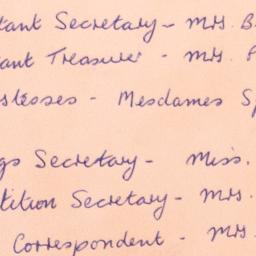 tant Secretary - Mrs. B
ant Treasurer - Mrs.
stesses - Mesdames Sp
gs Secretary - Miss.
tition Secretary - Mrs.
Correspondent - Mrs.